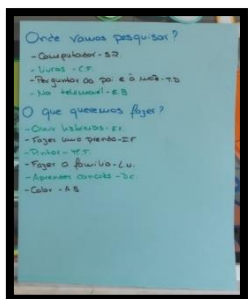 Onde vamos pesquisar?
- Computador - S.D.
- Livros - C.F.
- Perguntar ao pai e à mãe - T.D
- No telemóvel - E.B
O que queremos fazer?
- Ouvir histórias -
- Fazer uma prenda - I.F
- Pintar - M.F.
- Fazer a família - L.U.
- Aprender canções - D.C.
- Colar - A.B